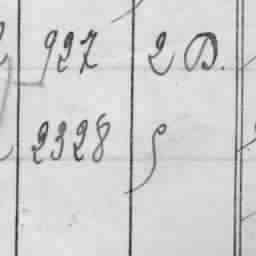 927 2 D.
2328 S